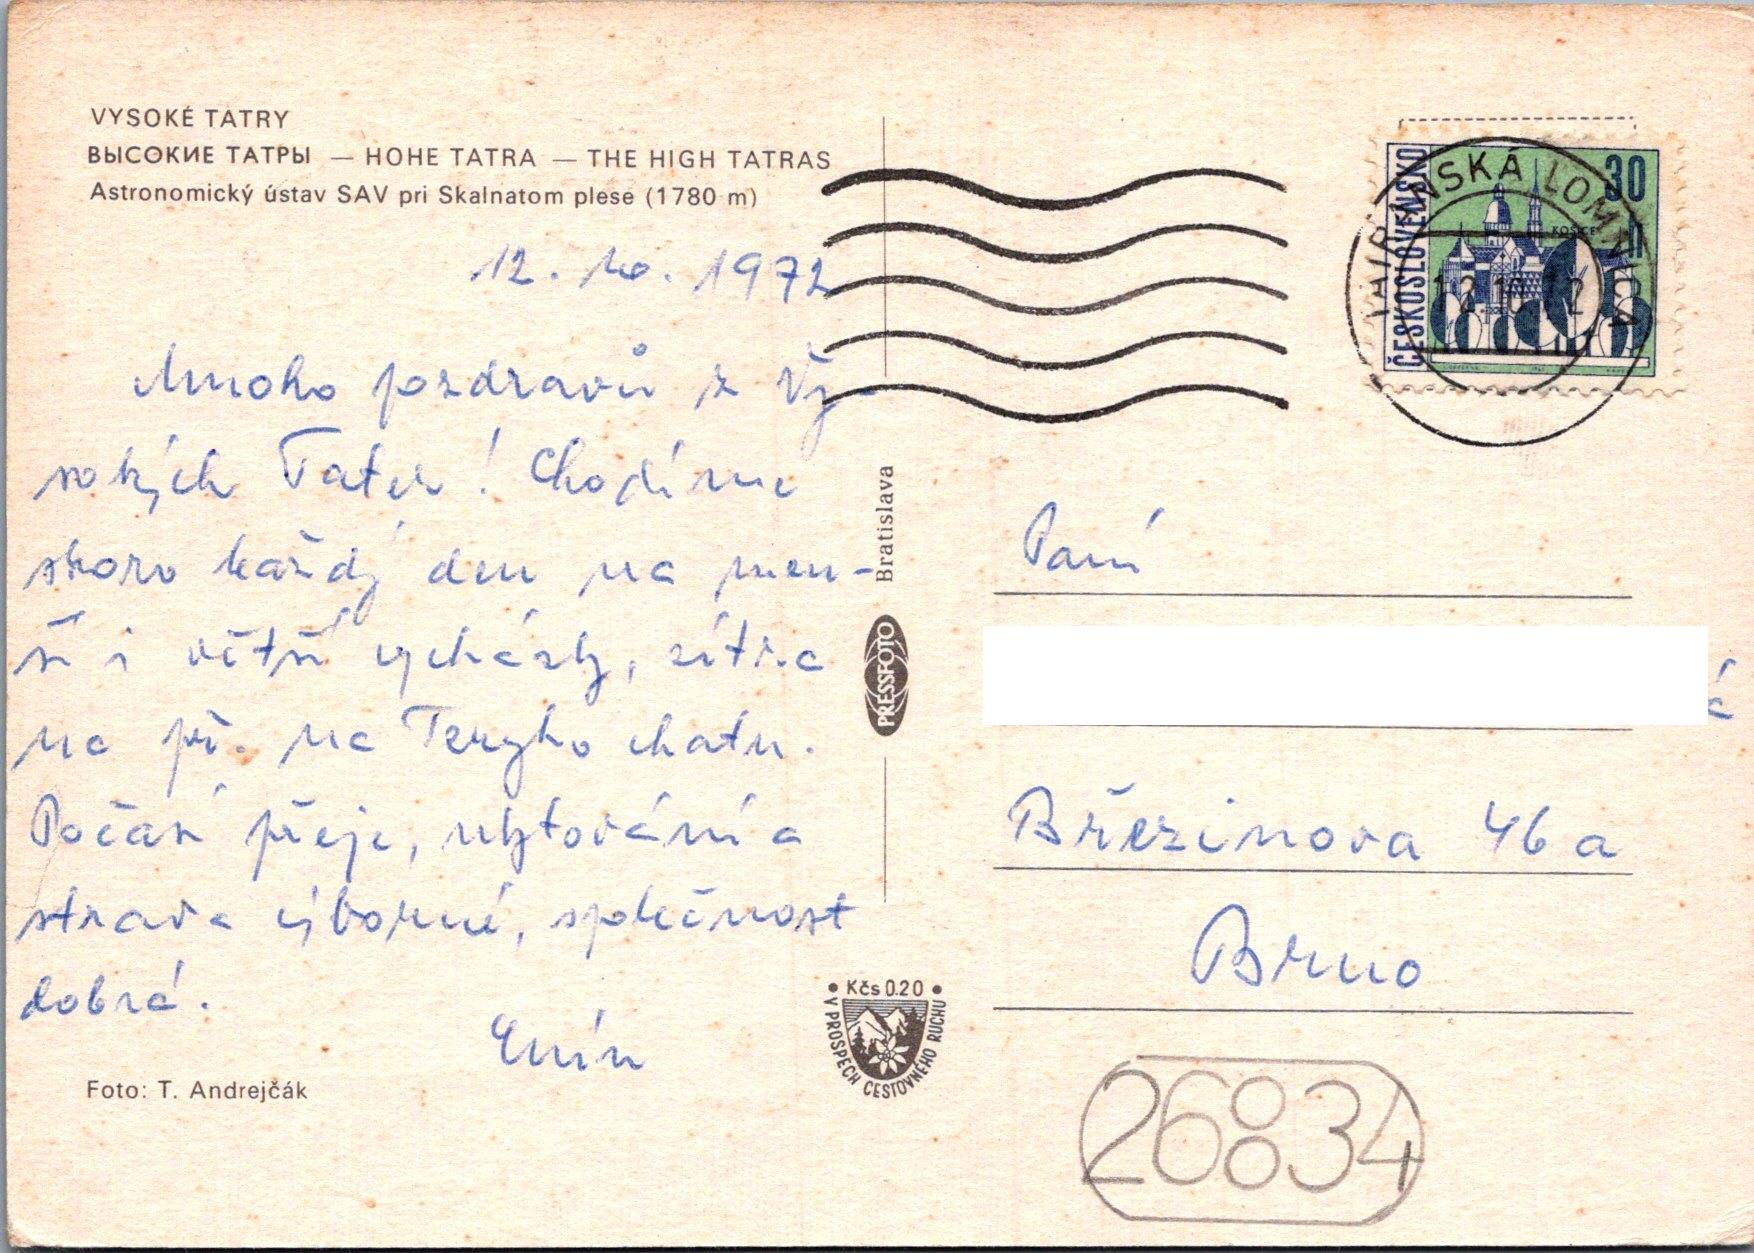 VYSOKÉ TATRY
ВЫСОКИЕ ТАТРЫ — HOHE TATRA — THE HIGH TATRAS
Astronomický ústav SAV pri Skalnatom plese (1780 m)
12. 10. 1972
Mnoho pozdravů z Vy-
sokých Tater! Chodíme
skoro každý den na men-
ší i větší vycházky, zítra
na př. na Teryho chatu.
Počasí přeje, ubytování a
strava výborné, společnost
dobrá.
Foto: T. Andrejčák
Bratislava
PRESSFOTO
Kčs 0.20
V PROSPECH CESTOVNÉHO RUCHU
ČESKOSLOVENSKO
30
KOŠICE
TATRANSKÁ LOMNICA
12.10.72
Paní
á
Březinova 46a
Brno
26834